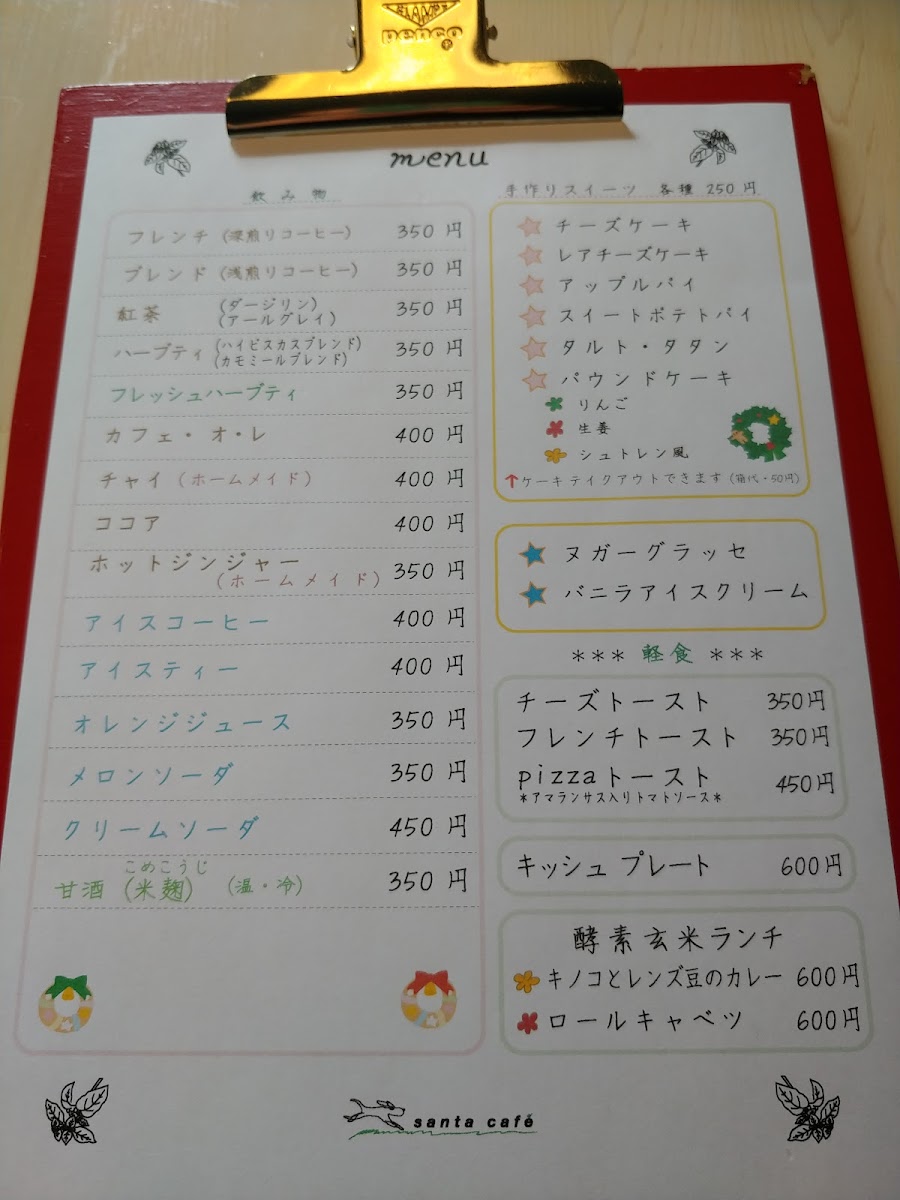 PENCO
menu
飲み物
フレンチ (深煎りコーヒー) 350 円
ブレンド (浅煎りコーヒー) 350 円
紅茶 (ダージリン) 350 円
(アールグレイ)
ハーブティ (ハイビスカスブレンド) 350 円
(カモミールブレンド)
フレッシュハーブティ 350 円
カフェ・オ・レ 400 円
チャイ (ホームメイド) 400 円
ココア 400 円
ホットジンジャー 350 円
(ホームメイド)
アイスコーヒー 400 円
アイスティー 400 円
オレンジジュース 350 円
メロンソーダ 350 円
クリームソーダ 450 円
こめこうじ
甘酒 (米麹) (温・冷) 350 円
手作りスイーツ 各種 250 円
チーズケーキ
レアチーズケーキ
アップルパイ
スイートポテトパイ
タルト・タタン
パウンドケーキ
りんご
生姜
シュトレン風
↑ケーキテイクアウトできます (箱代・50円)
ヌガーグラッセ
バニラアイスクリーム
*** 軽食 ***
チーズトースト 350円
フレンチトースト 350円
pizzaトースト 450円
*アマランサス入りトマトソース*
キッシュ プレート 600円
酵素玄米ランチ
キノコとレンズ豆のカレー 600円
ロールキャベツ 600円
santa café